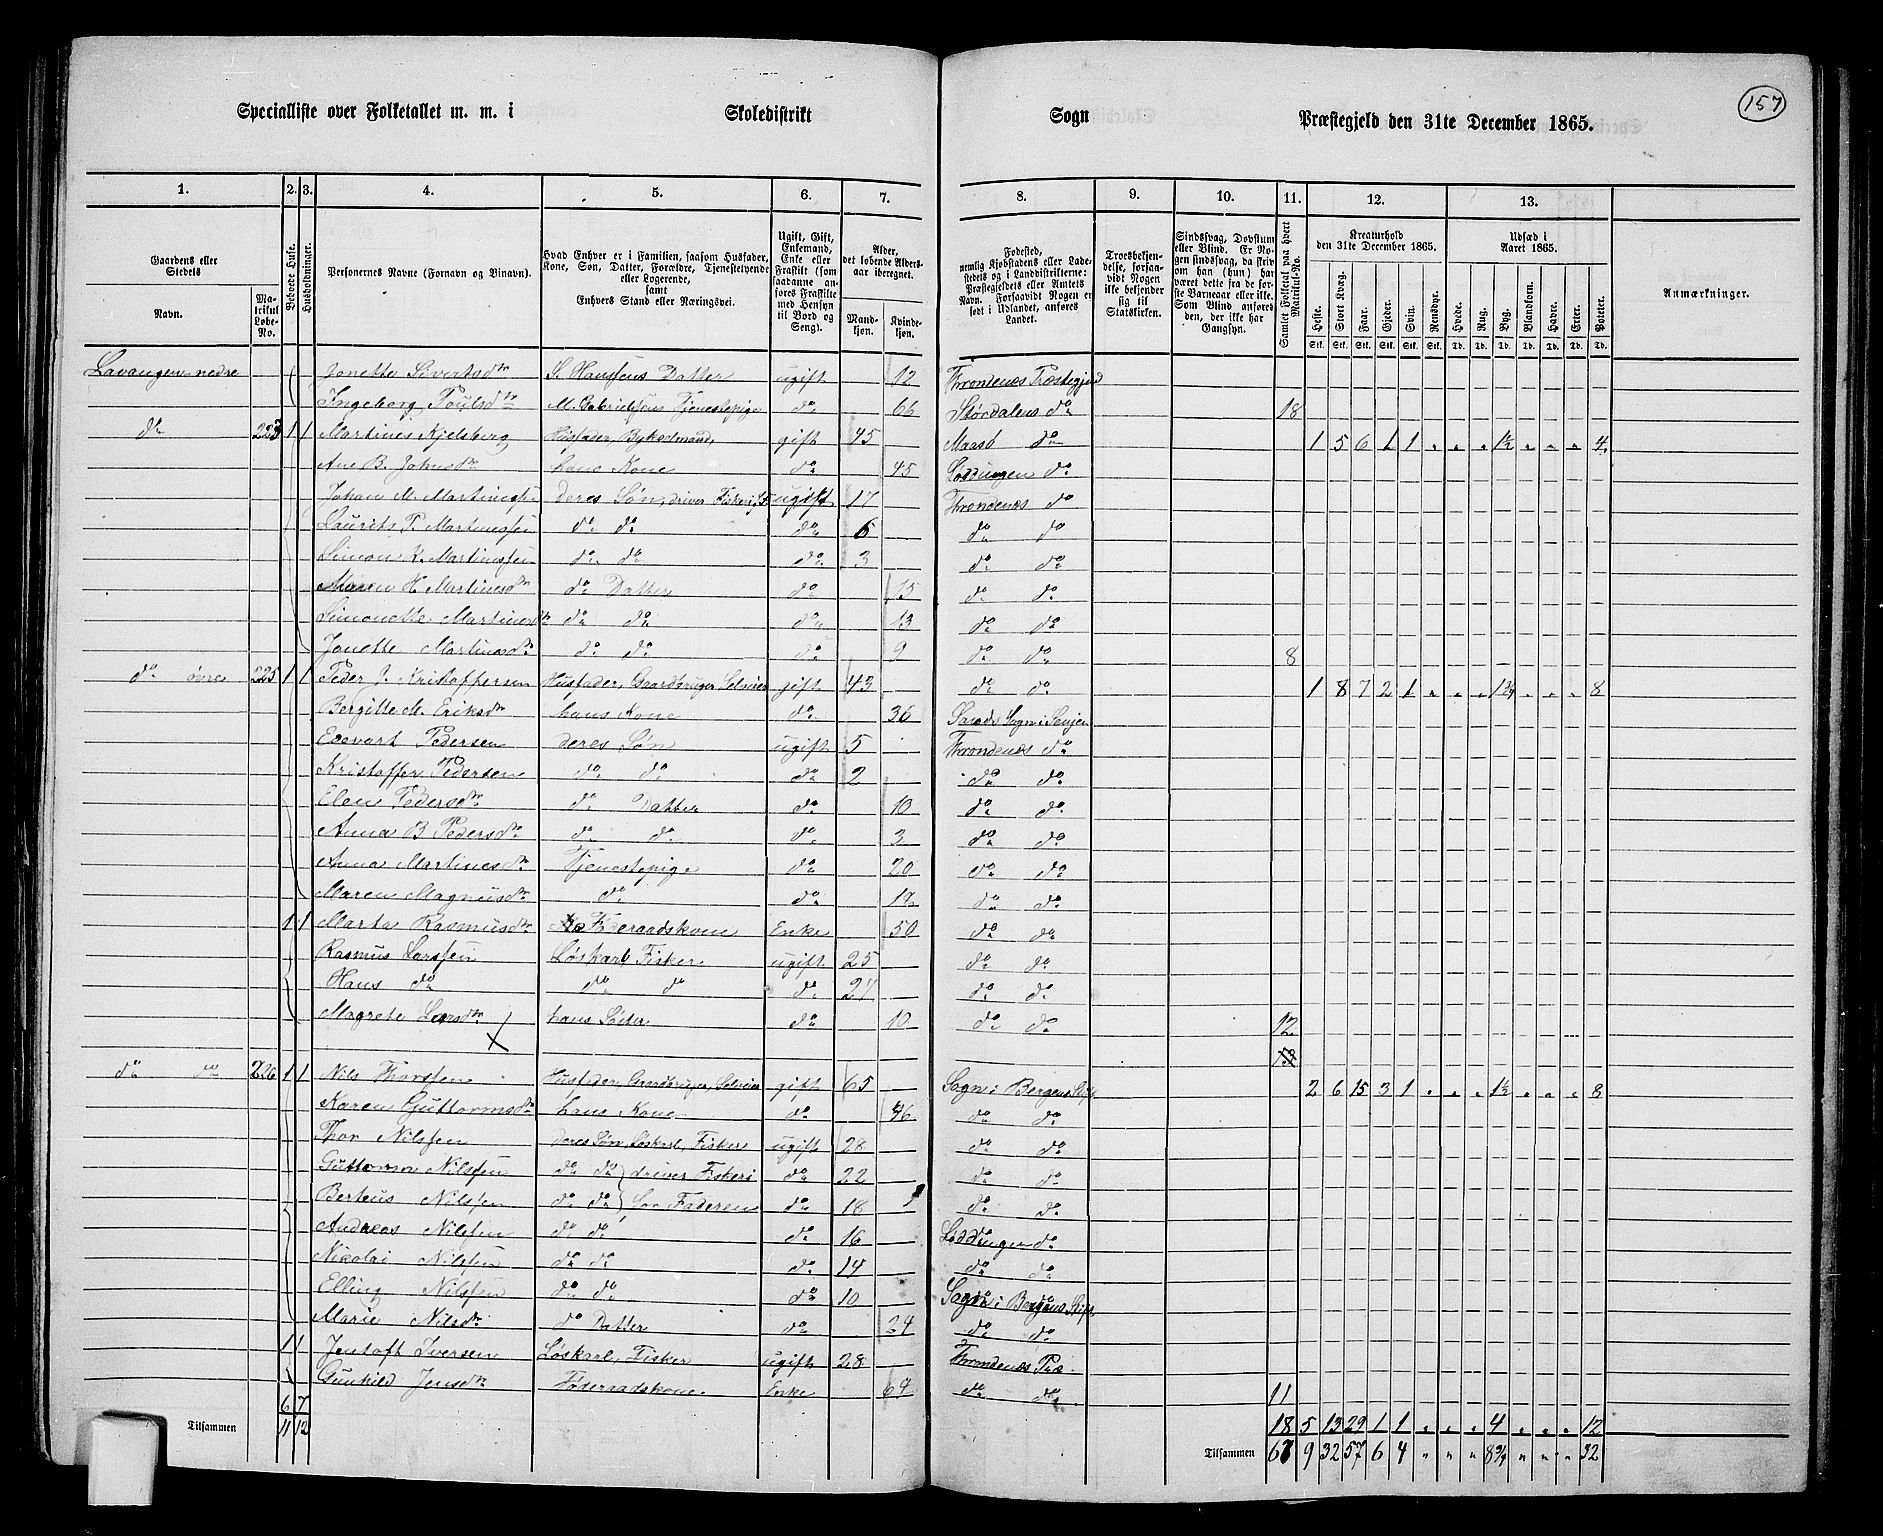 157
Specialliste over Folketallet m. m. i Skoledistrikt Sogn Præstegjeld den 31te December 1865.
1. 2. 3. 4. 5. 6. 7. 8. 9. 10. 11. 12. 13.
Gaardens eller Stedets
Navn. Matrikul Løbe-No.
Beboede Huse.
Husholdninger.
Personernes Navne (Fornavn og Binavn).
Hvad Enhver er i Familien, saasom Husfader, Kone, Søn, Datter, Forældre, Tjenestetyende eller Logerende, samt Enhvers Stand eller Næringsvei.
Ugift, Gift, Enkemand, Enke eller Fraskilt (som saadanne anføres Fraskilte med Hensyn til Bord og Seng).
Alder, det løbende Aldersaar iberegnet.
Mandkjøn. Kvindekjøn.
Fødested, nemlig Kjøbstadens eller Ladestedets og i Landdistrikterne: Præstegjeldets eller Amtets Navn. Forsaavidt Nogen er født i Udlandet, anføres Landet.
Troesbekjendelse, forsaavidt Nogen ikke bekjender sig til Statskirken.
Sindssvag, Døvstum eller Blind. Er Nogen sindssvag, da skrives om han (hun) har været dette fra de første Barneaar eller ikke. Som Blind anføres den, der ikke har Gangsyn.
Samlet Folketal paa hvert Matrikul-No.
Kreaturhold den 31te December 1865.
Heste. Stort Kvæg. Faar. Gjeder. Svin. Rensdyr.
Udsæd i Aaret 1865.
Hvede. Rug. Byg. Blandkorn. Havre. Erter. Poteter.
Stk. Stk. Stk. Stk. Stk. Stk. Td. Td. Td. Td. Td. Td. Td.
Anmærkninger.
Lavangen nedre Jonette Sivertsdtr S. Hanssens Datter ugift 12 Throndenes Præstegjeld
Ingeborg Poulsdtr M. Gabrielsens Tjenestepige do 66 Størdalens do 18
do 223 1 1 Martines Kjelsberg Husfader, gift 45 Maasø do 1 5 6 1 1 " " " 1½ " " " 4
Ane B. Johnsdtr hans Kone do 45 Loddingen do
Johan M. Martinessen deres Søn, driver Fiskeri ugift 17 Throndenes do
Laurits P. Martinessen do do do 6 do do
Simon K. Martinessen do do do 3 do do
Maren H. Martinesdtr do Datter do 15 do do
Simonette Martinesdtr do do do 13 do do
Jonette Martinesdtr do do do 9 do do 8
do øvre 225 1 1 Peder J. Kristoffersen Husfader, Gaardbruger, Selveier gift 43 do do 1 8 7 2 1 " " " 1¾ " " " 8
Bergitte M. Eriksdtr hans Kone do 36 Sogn i Senjen
Edevart Pedersen deres Søn ugift 5 Throndenes do
Kristoffer Pedersen do do do 2 do do
Elen Pedersdtr do Datter do 10 do do
Anna B Pedersdtr do do do 3 do do
Anna Martinesdtr Tjenestepige do 20 do do
Maren Magnusdtr do do 18 do do
1 1 Marta Rasmusdtr Føderaadskone Enke 50 do do
Rasmus Larssen Løskarl Fisker ugift 25 do do
Hans do do do do 27 do do
Magrete Larsdtr hans Søster do 10 do do 12
do do 226 1 1 Nils Thorssen Husfader, Gaardbruger, Selveier gift 65 Sogn i Bergens Stift 2 6 15 3 1 " " " 1½ " " " 8
Karen Guttormsdtr hans Kone do 46 do do
Thor Nilssen deres Søn, Løskarl, Fisker ugift 28 do do
Guttorm Nilssen do do driver Fiskeri do 22 do do
Berteus Nilssen do do for Faderen do 18 do do
Andreas Nilssen do do do 16 Loddingen do
Nikolai Nilssen do do do 14 do do
Elling Nilssen do do do 10 Sogn i Bergens Stift
Marie Nilsdtr do Datter do 24 do do
1 1 Jentoft Iversen Løskarl, Fisker ugift 28 Throndenes Præ.
Gunhild Jensdtr Føderaadskone Enke 69 do do 11
6 7 18 5 13 29 1 1 " " " 4 " " " 12
Tilsammen 11 12 Tilsammen 67 9 32 57 6 4 " " " 8¾ " " " 32